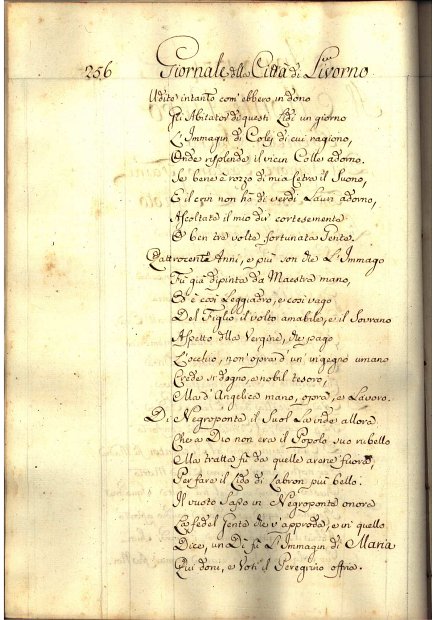 256 Giornale della Città di Livorno
Udite intanto com' ebbero in dono
Gli Abitator di questi Lidi un giorno
L' Immagin di Colei di cui ragiono,
Onde risplende il vicin Colle adorno.
Se bene è rozzo di mia Cetra il Suono,
E il crin non ha di verdi Lauri adorno,
Ascoltate il mio dir cortesemente
O ben tre volte fortunata Gente.
Quattrocento Anni, e più son che L' Immago
Fù già dipinta da Maestra mano,
Ed è così Leggiadro, e così vago
Del Figlio il volto amabile, e il Sovrano
Aspetto della Vergine, che pago
L'occhio, non' opra d' un' ingegno umano
Crede si degno, e nobil tesoro,
Ma d' Angelica mano, opra, e Lavoro.
Di Negroponte il Suol La vide allora
Che a Dio non era il Popolo suo rubello
Ma tratta fù da quelle arene fuora,
Per fare il Lido di Labron più bello.
Il vuoto Sasso in Negroponte onora
La fedel Gente che v' approda, e in' quello
Dice, un Dì fù L' Immagin di Maria
Qui doni, e Voti il Peregrino offria.